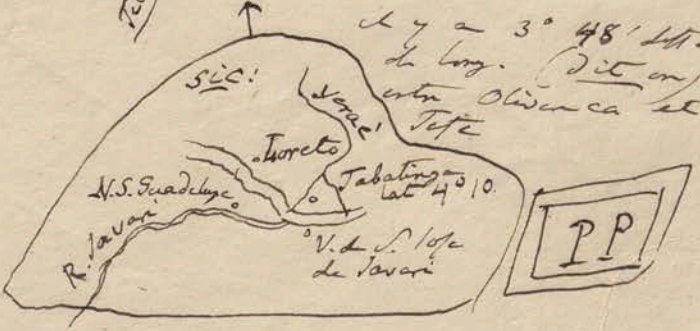 il y a 3° 48' diff.
de long. (dit on)
entre Olivenca et
Tefe
sic!
Loreto
Tabatinga
lat 4° 10.
N.S. Guadelupe
R. Javari
V. de S. Jose
de Javari
PP